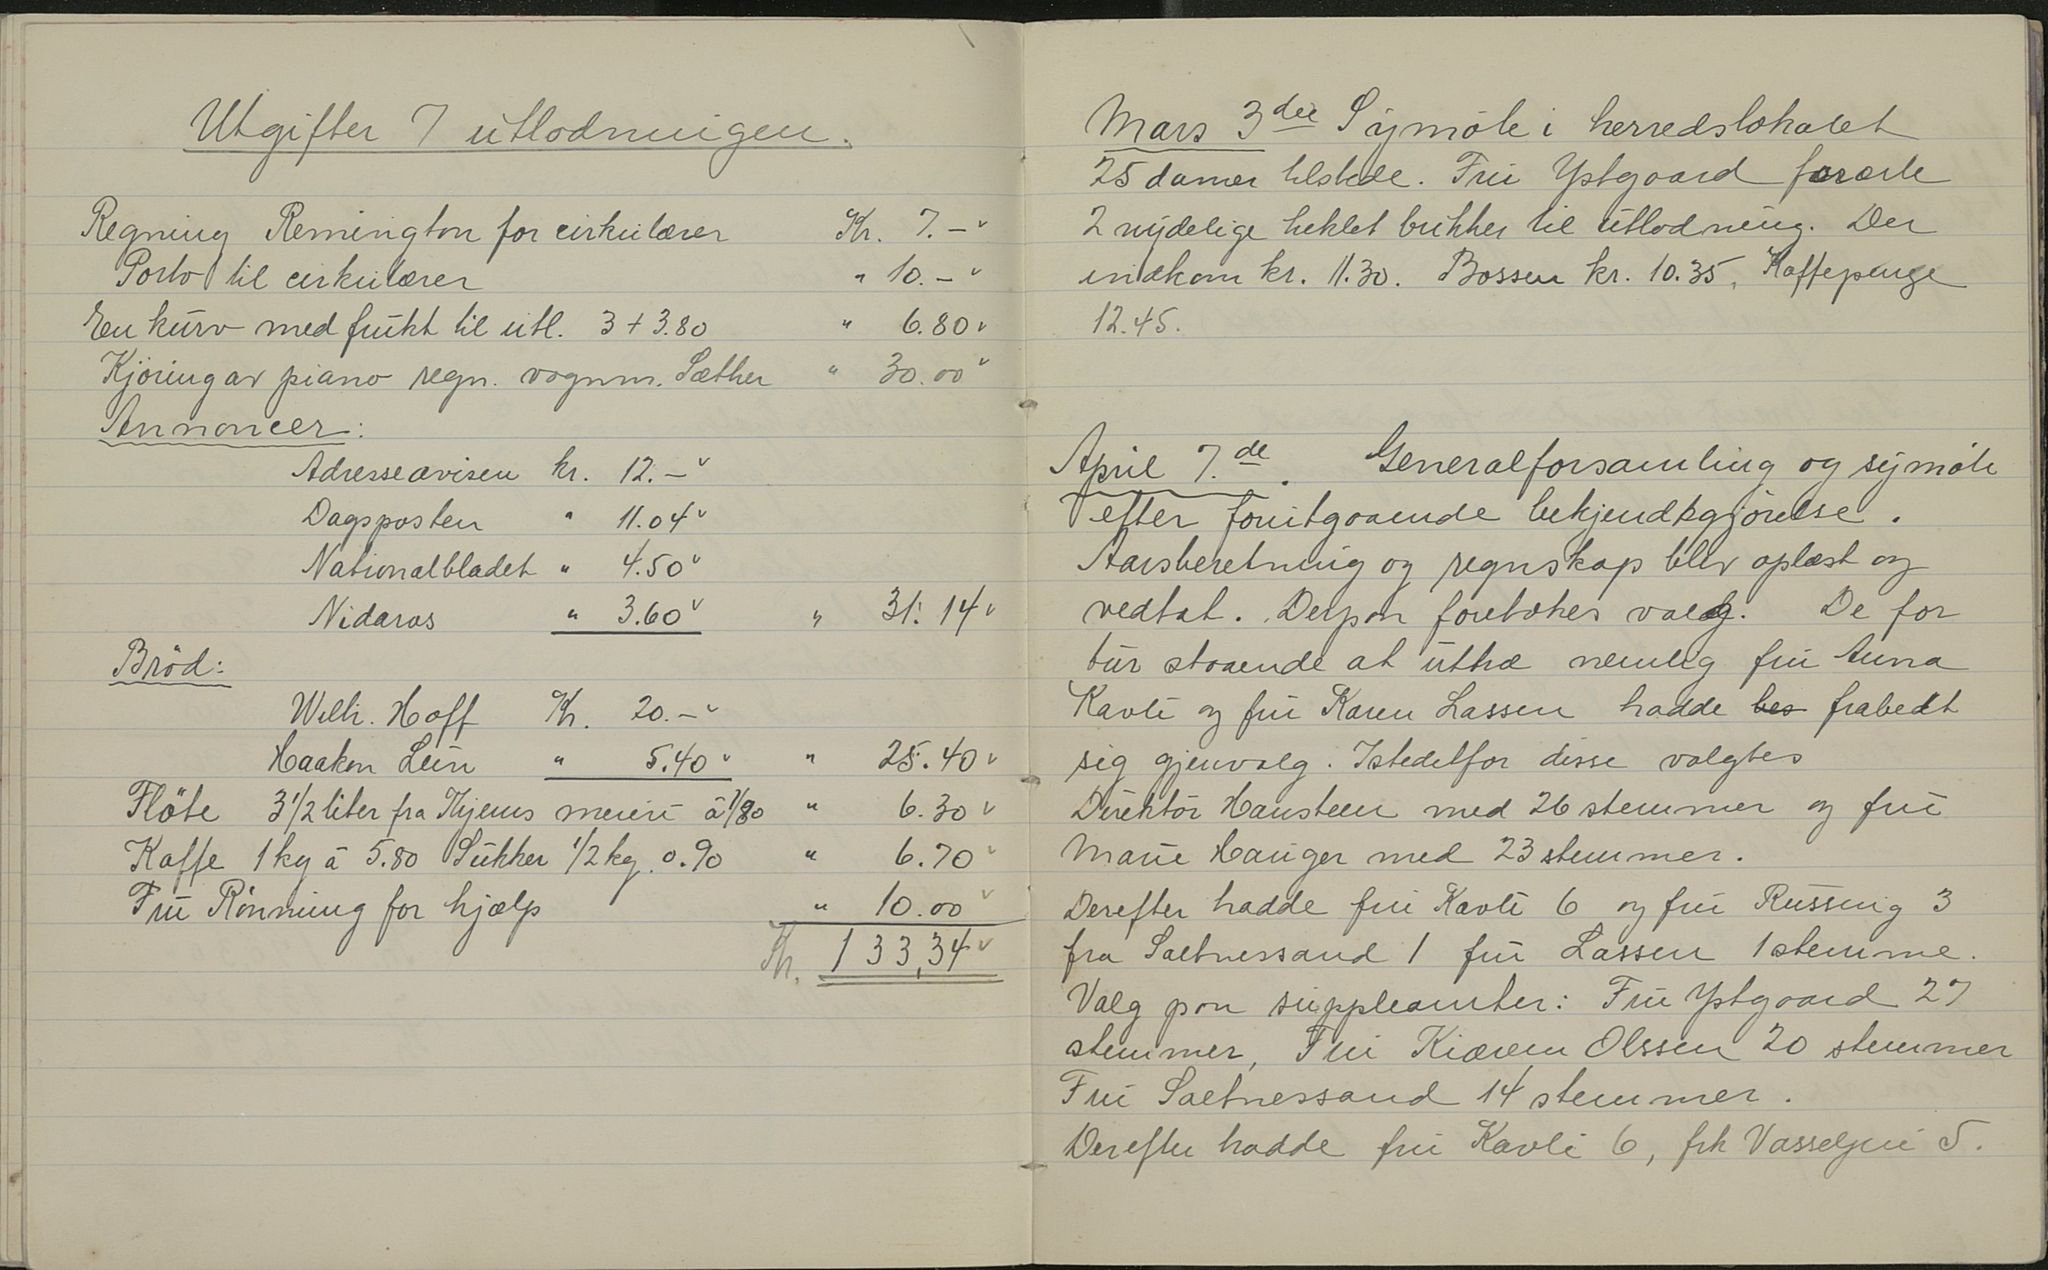 Utgifter 7 utlodningen.
Regning Remington for cirkulærer Kr. 7.-
Porto til cirkulærer " 10.-
En kurv med frukt til utl. 3 + 3.80 " 6.80
Kjöring av piano regn. vognm. Sæther " 30.00
Annoncer:
Adresseavisen kr. 12.-
Dagsposten " 11.04
Nationalbladet " 4.50
Nidaros " 3.60 " 31.14
Bröd:
Wilh. Hoff Kr. 20.-
Haakon Lein " 5.40 " 25.40
Flöte 3 1/2 liter fra Kjems meieri á 1/80 " 6.30
Kaffe 1 kg á 5.80 Sukker 1/2 kg. 0.90 " 6.70
Fru Rönning for hjælp " 10.00
Kr. 133,34
Mars 3die Symöte i herredslokalet
25 damer tilstede. Fru Ystgaard forærte
2 nydelige heklet brikker til utlodning. Der
indkom kr. 11.30. Bössen kr. 10.35, Kaffepenge
12.45.
April 7.de. Generalforsamling og symöte
efter forutgaaende bekjendtgjörelse.
Aarsberetning og regnskap blev oplæst og
vedtat. Derpaa foretokes valg. De for
tur staaende at uttræ nemlig fru Anna
Kavli og fru Karen Lassen hadde bes frabedt
sig gjenvalg. Istedetfor disse valgtes
Direktör Hansteen med 26 stemmer og fru
Marie Hauger med 23 stemmer.
Derefter hadde fru Kavli 6 og fru Russing 3
fra Saetnessand 1 fru Lassen 1 stemme.
Valg paa suppleanter: Fru Ystgaard 27
stemmer, Fru Kiærem Olssen 20 stemmer
Fru Saetnessand 14 stemmer.
Derefter hadde fru Kavli 6, frk Vasseljen 5.